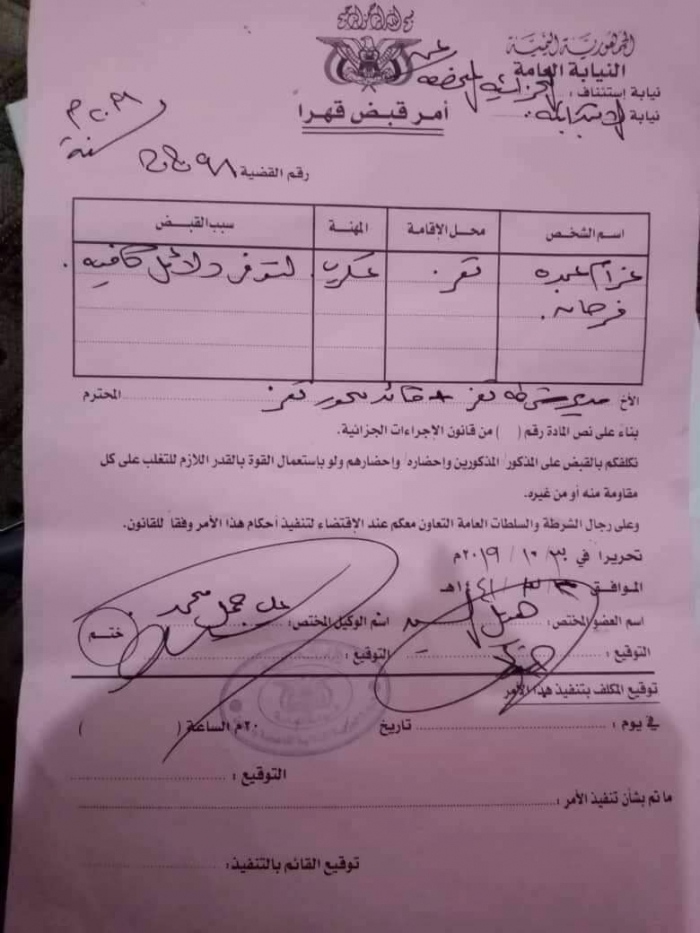 بسم الله الرحمن الرحيم
الجمهورية اليمنية
النيابة العامة
نيابة إستئناف : الجزائية المتخصصة عدن
نيابة : الابتدائية
أمر قبض قهرا
لسنة ٢٠١٩م
رقم القضية
اسم الشخص محل الإقامة المهنة سبب القبض
عزام عبده تعز . عسكري . لتوفر دلائل كافيه .
فرحان .
الأخ مدير شرطة تعز + قائد محور تعز المحترم
بناء على نص المادة رقم ( ) من قانون الإجراءات الجزائية.
نكلفكم بالقبض على المذكور/ المذكورين وإحضاره/ وإحضارهم ولو بإستعمال القوة بالقدر اللازم للتغلب على كل
مقاومة منه أو من غيره.
وعلى رجال الشرطة والسلطات العامة التعاون معكم عند الإقتضاء لتنفيذ أحكام هذا الأمر وفقاً للقانون.
تحريراً في ٣٠ / ١٠ / ٢٠١٩م
الموافق / / ١٤٤١هـ
اسم العضو المختص : اسم الوكيل المختص : محمد
التوقيع : التوقيع :
ختم
توقيع المكلف بتنفيذ هذا الأمر
في يوم : تاريخ ٢٠م الساعة ( )
التوقيع :
ما تم بشأن تنفيذ الأمر :
توقيع القائم بالتنفيذ: